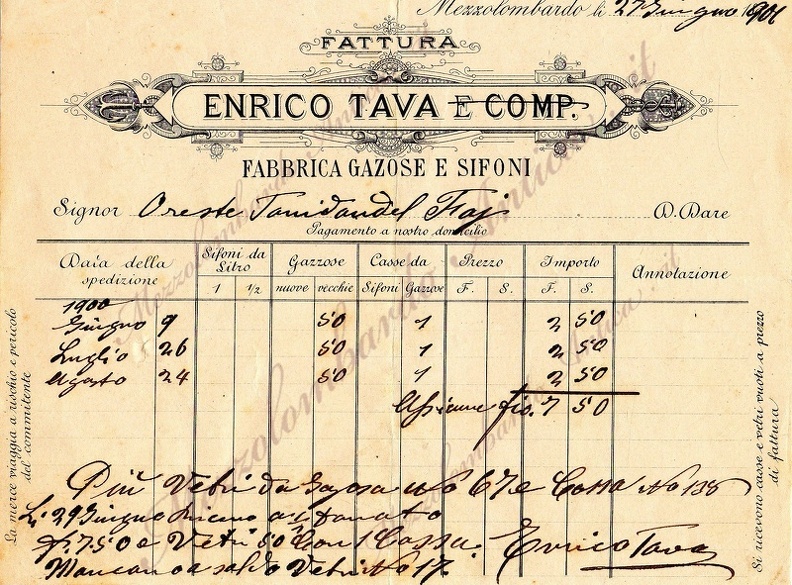 Mezzolombardo li 27 Giugno 1901
FATTURA
ENRICO TAVA E COMP.
FABBRICA GAZOSE E SIFONI
Signor Oreste D. Dare
Pagamento a nostro domicilio
Data della spedizione Sifoni da Litro Gazzose Casse da Prezzo Importo Annotazione
1 ½ nuove vecchie Sifoni Gazose F. S. F. S.
1900
Giugno 9 50 1 2 50
Luglio 26 50 1 2 50
Agosto 24 50 1 2 50
Assieme fio. 7 50
Più Vetri da Gazosa No 67 e Cassa No 138
Li 29 Giugno
F. 7.50 e Vetri 50 con 1 Cassa. Enrico Tava
Mancano a saldo Vetri No 17.
La merce viaggia a rischio e pericolo
del committente
Si ricevono casse e vetri vuoti a prezzo
di fattura
Mezzolombardo Antica.it